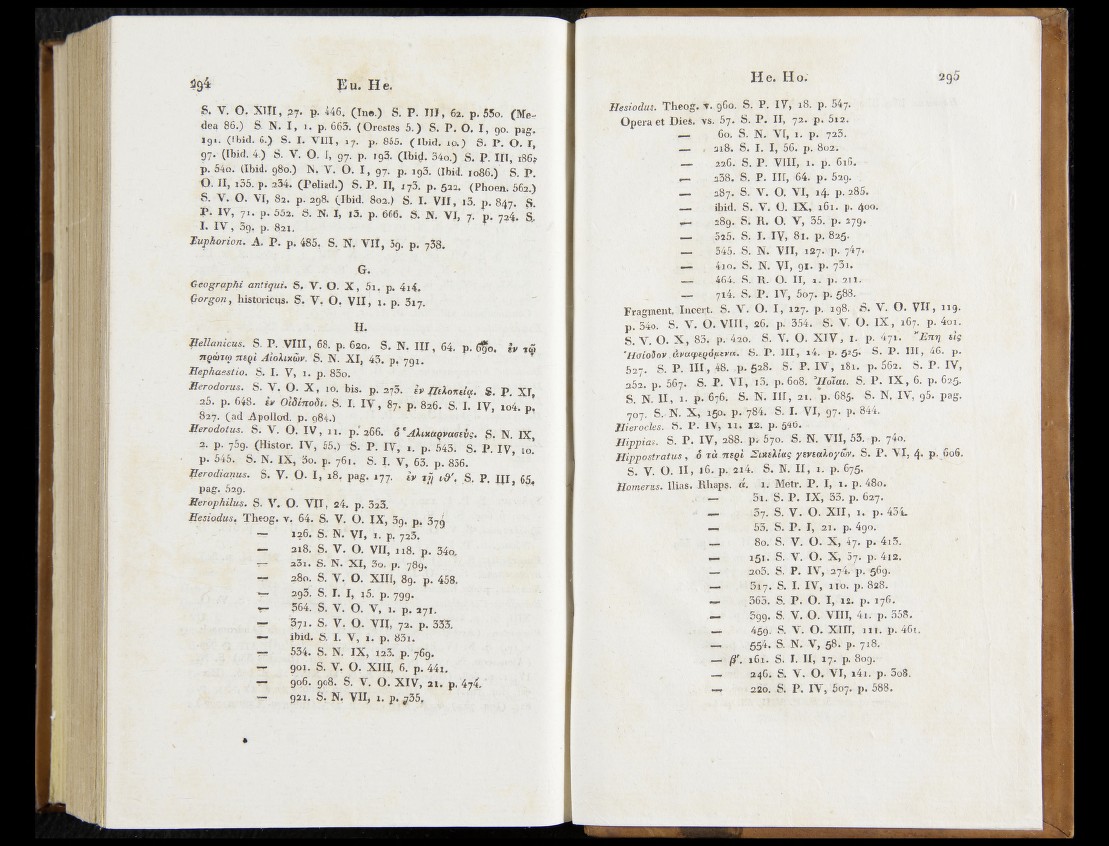 294 Eu. He.
S. V. O. XIII, 27. p. 446. (Ino.) S. P. III, 62. p. 550. (Me-
dea 86.) S. N. I, 1. p. 663. (Orestes 5.) S. P. O. I, 90. pag.
191. (Ibid. 6.) S. I. VIII, 17. p. 855. (Ibid. 10.) S. P. O. I,
97. (Ibid. 4.) S. V. O. I, 97. p. 193. (Ibid. 340.) S. P. III, 186.
p. 540. (Ibid. 980.) N. V. O. I, 97. p. 193. (Ibid. 1086.) S. P.
O. II, 135. p. 234. (Peliad.) S. P. II, 173. p. 522. (Phoen. 562.)
S. V. O. VI, 82. p. 298. (Ibid. 802.) S. I. VII, 13. p. 847. S.
P. IV, 71. p. 552. S. N. I, 13. p. 666. S. N. VI, 7. p. 724. S.
I. IV, 39. p. 821.
Euphorion. A. P. p. 485. S. N. VII, 39. p. 738.
G.
Geographi antiqui. S. V. O. X, 51. p. 414.
Gorgon, historicus. S. V. O. VII, 1. p. 317.
H.
Hellanicus. S. P. VIII, 68. p. 620. S. N. III, 64. p. 690. ἐν τῷ
πρώτῳ περὶ Αἰολικῶν. S. N. XI, 43. p. 791.
Hephaestio. S. I. V, 1. p. 830.
Herodorus. S. V. O. X, 10. bis. p. 273. ἐν Πελοπείᾳ. S. P. XI,
25. p. 648. ἐν Οἰδίποδι. S. I. IV, 87. p. 826. S. I. IV, 104. p.
827. (ad Apollod. p. 984.)
Herodotus. S. V. O. IV, 11. p. 266. ὁ Ἁλικαρνασεύς. S. N. IX,
2. p. 759. (Histor. IV, 55.) S. P. IV, 1. p. 543. S. P. IV, 10.
p. 545. S. N. IX, 30. p. 761. S. I. V, 63. p. 836.
Herodianus. S. V. O. I, 18. pag. 177. ἐν τῇ ιθ'. S. P. III, 65.
pag. 529.
Herophilus. S. V. O. VII, 24. p. 323.
Hesiodus. Theog. v. 64. S. V. O. IX, 39. p. 379
— 126. S. N. VI, 1. p. 723.
— 218. S. V. O. VII, 118. p. 340.
— 231. S. N. XI, 30. p. 789.
— 280. S. V. O. XIII, 89. p. 458.
— 293. S. I. I, 15. p. 799.
— 364. S. V. O. V, 1. p. 271.
— 371. S. V. O. VII, 72. p. 333.
— ibid. S. I. V, 1. p. 831.
— 534. S. N. IX, 123. p. 769.
— 901. S. V. O. XIII, 6. p. 441.
— 906. 908. S. V. O. XIV, 21. p. 474.
— 921. S. N. VII, 1. p. 735.
He. Ho. 295
Hesiodus. Theog. v. 960. S. P. IV, 18. p. 547.
Opera et Dies. vs. 57. S. P. II, 72. p. 512.
— 60. S. N. VI, 1. p. 723.
— 218. S. I. I, 56. p. 802.
— 226. S. P. VIII, 1. p. 616.
— 238. S. P. III, 64. p. 529.
— 287. S. V. O. VI, 14. p. 285.
— ibid. S. V. O. IX, 161. p. 400.
— 289. S. R. O. V, 35. p. 279.
— 325. S. I. IV, 81. p. 825.
— 345. S. N. VII, 127. p. 747.
— 410. S. N. VI, 91. p. 731.
— 464. S. R. O. II, 1. p. 211.
— 714. S. P. IV, 507. p. 588.
Fragment. Incert. S. V. O. I, 127. p. 198. S. V. O. VII, 119.
p. 340. S. V. O. VIII, 26. p. 354. S. V. O. IX, 167. p. 401.
S. V. O. X, 83. p. 420. S. V. O. XIV, 1. p. 471. Ἔπη εἰς
Ἡσίοδον ἀναφερόμενα. S. P. III, 14. p. 525. S. P. III, 46. p.
527. S. P. III, 48. p. 528. S. P. IV, 181. p. 562. S. P. IV,
252. p. 567. S. P. VI, 13. p. 608. Ἠοῖαι. S. P. IX, 6. p. 625.
S. N. II, 1. p. 676. S. N. III, 21. p. 685. S. N. IV, 95. pag.
707. S. N. X, 150. p. 784. S. I. VI, 97. p. 844.
Hierocles. S. P. IV, 11. 12. p. 546.
Hippias. S. P. IV, 288. p. 570. S. N. VII, 53. p. 740.
Hippostratus, ὁ τὰ περὶ Σικελίας γενεαλογῶν. S. P. VI, 4. p. 606.
S. V. O. II, 16. p. 214. S. N. II, 1. p. 675.
Homerus. Ilias. Rhaps. ά. 1. Metr. P. I, 1. p. 480.
— 31. S. P. IX, 33. p. 627.
— 37. S. V. O. XII, 1. p. 434.
— 53. S. P. I, 21. p. 490.
— 80. S. V. O. X, 47. p. 413.
— 151. S. V. O. X, 37. p. 412.
— 203. S. P. IV, 274. p. 569.
— 317. S. I. IV, 110. p. 828.
— 363. S. P. O. I, 12. p. 176.
— 399. S. V. O. VIII, 41. p. 358.
— 459. S. V. O. XIII, 111. p. 461.
— 554. S. N. V, 58. p. 718.
— β'. 161. S. I. II, 17. p. 809.
— 246. S. V. O. VI, 141. p. 308.
— 220. S. P. IV, 507. p. 588.